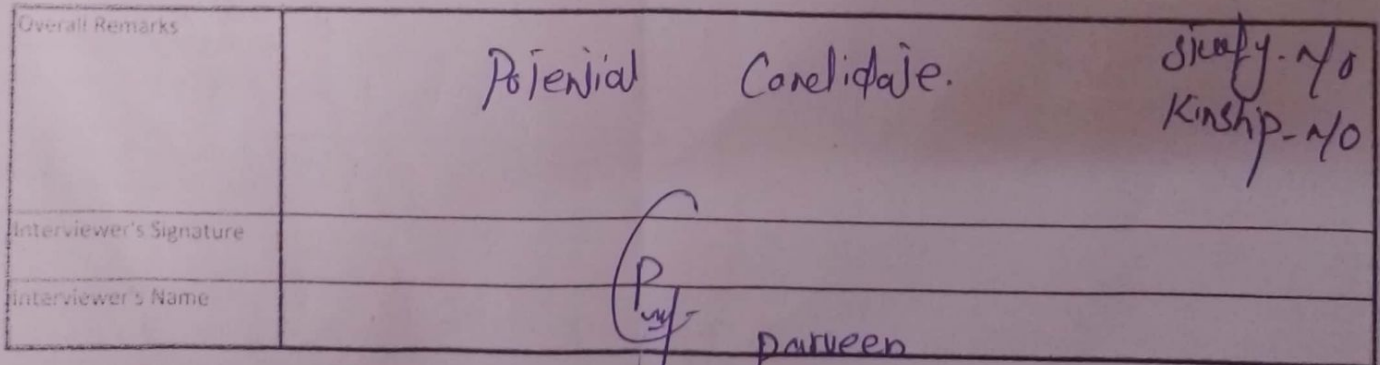 Overall Remarks
Potential Candidate.
Kinship - N/O
Interviewer's Signature
Interviewer's Name
Parveen